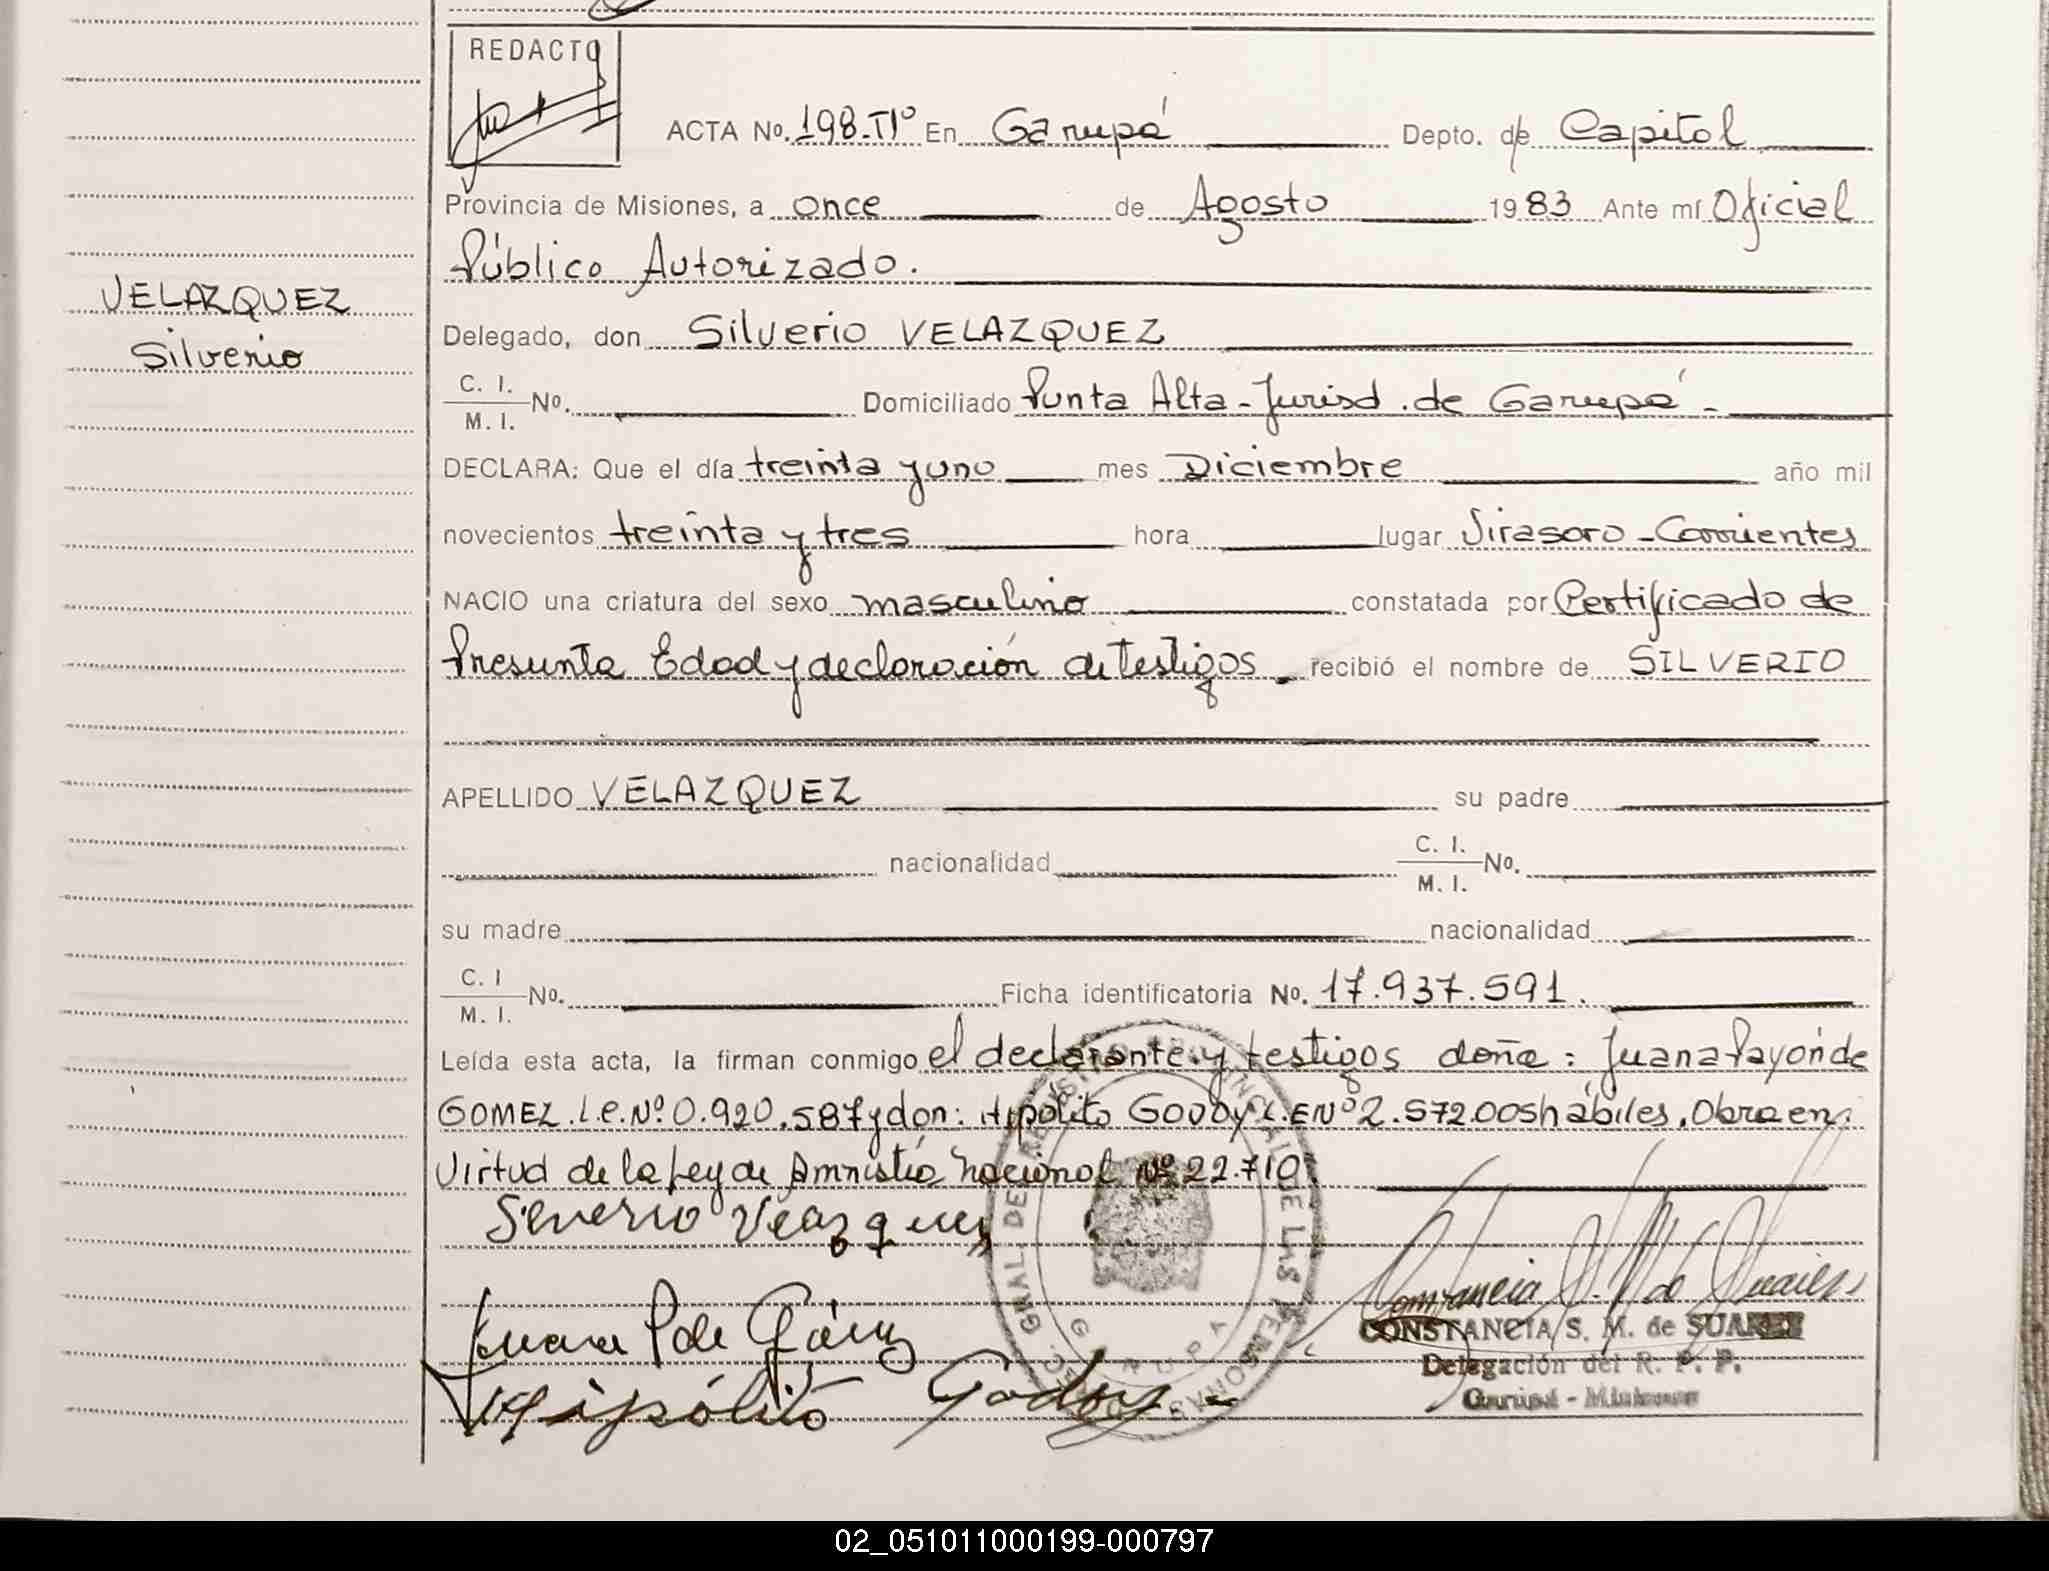 REDACTO
ACTA No. 198-Tº En Garupá Depto. de Capital
Provincia de Misiones, a once de Agosto 1983 Ante mí Oficial
Público Autorizado.
VELAZQUEZ
Silverio
Delegado, don Silverio VELAZQUEZ
C. I.
M. I. No. Domiciliado Punta Alta - Jurisd. de Garupá -
DECLARA: Que el día treinta y uno mes Diciembre año mil
novecientos treinta y tres hora lugar Virasoro - Corrientes
NACIO una criatura del sexo masculino constatada por Certificado de
Presunta Edad y declaración de Testigos recibió el nombre de SILVERIO
APELLIDO VELAZQUEZ su padre
nacionalidad C. I.
M. I. No.
su madre nacionalidad
C. I
M. I. No. Ficha identificatoria No. 17.937.591.
Leída esta acta, la firman conmigo el declarante y testigos doña: Juana Payón de
GOMEZ. L.C. Nº 0.920.587 y don: Hipólito GODOY L.E Nº 2.572.005 hábiles. Obra en
Virtud de la Ley de Amnistía Nacional Nº 22.710.
Juana P de Gómez
Hipólito Godoy
CONSTANCIA S. M. de SUAREZ
Delegación del R. P. P.
Garupá - Misiones
02_051011000199-000797